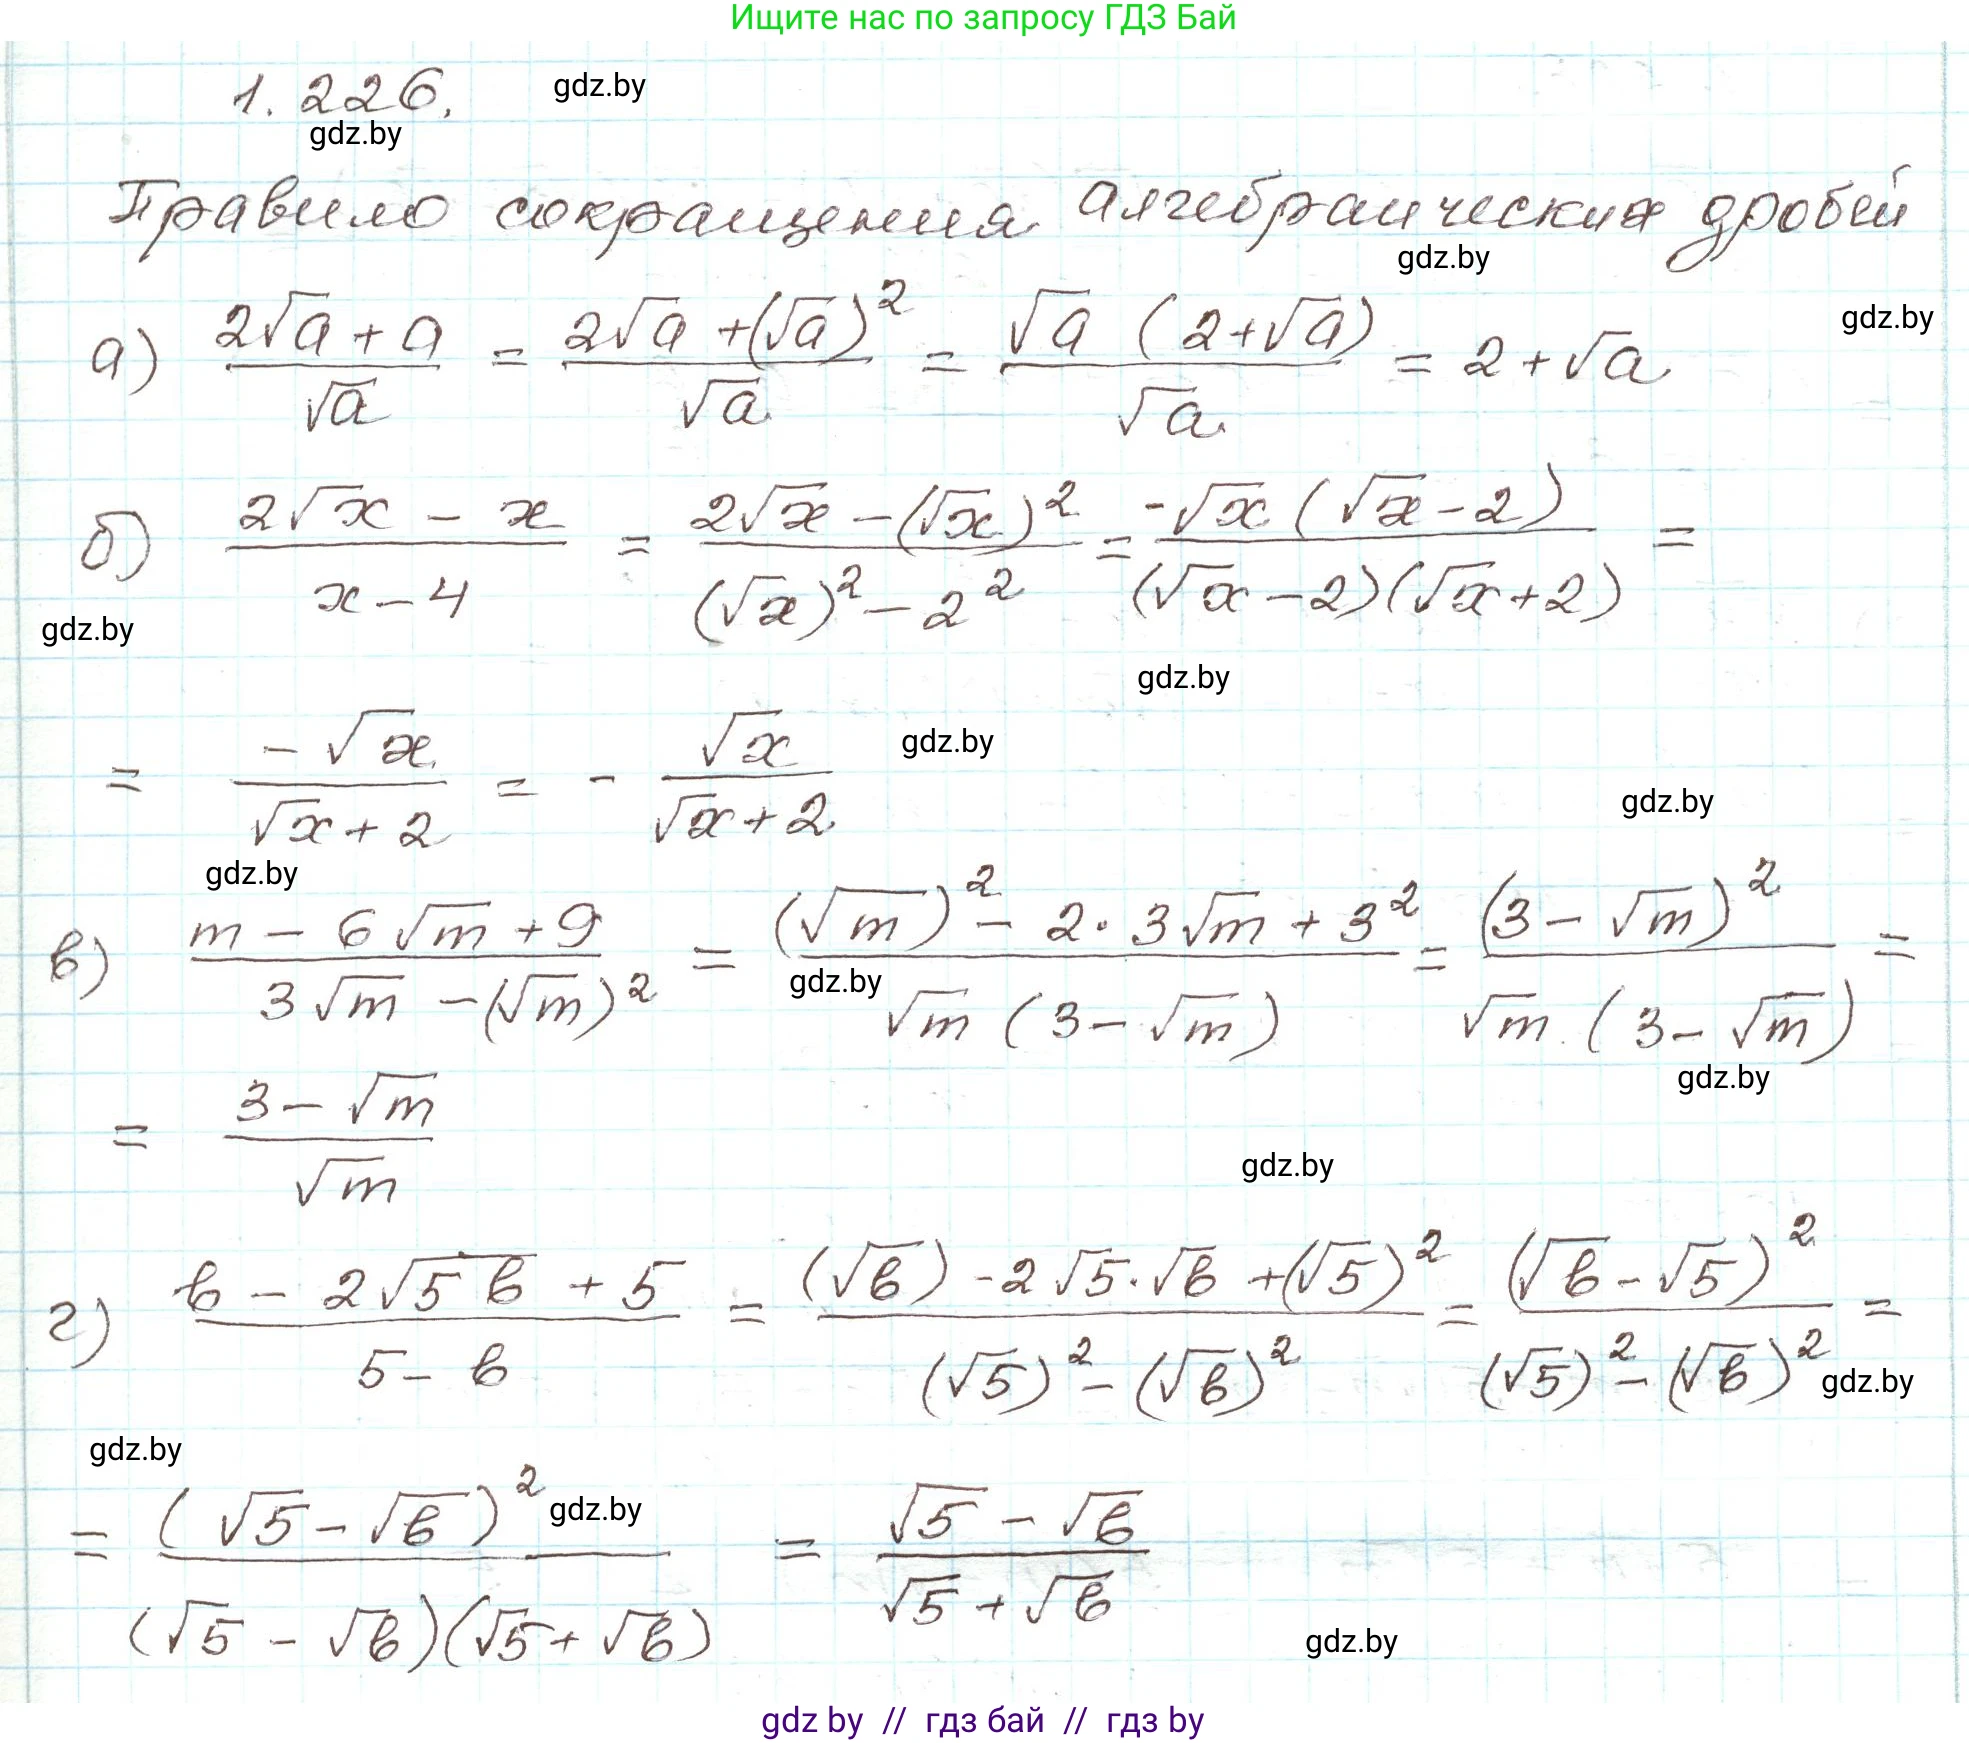 Ищите нас по запросу ГДЗ Бай
1.226. gdz.by
gdz.by
Правило сокращения алгебраических дробей
gdz.by
gdz.by
а) (2√a + a)/√a = (2√a + (√a)²)/√a = (√a (2+√a))/√a = 2 + √a
б) (2√x − x)/(x − 4) = (2√x − (√x)²)/((√x)² − 2²) = (-√x (√x - 2))/((√x − 2)(√x + 2)) =
gdz.by
gdz.by
= (−√x)/(√x + 2) = - √x/(√x + 2) gdz.by
gdz.by
gdz.by
в) (m − 6√m + 9)/(3√m − (√m)²) = ((√m)² − 2·3√m + 3²)/(√m (3 − √m)) = (3 − √m)²/(√m (3 − √m)) =
gdz.by
gdz.by
= (3 − √m)/√m
gdz.by
г) (в − 2√5в + 5)/(5 − в) = ((√в) - 2√5·√в + (√5)²)/((√5)² − (√в)²) = (√в − √5)²/((√5)² − (√в)²) =
gdz.by
gdz.by
= (√5 − √в)²/((√5 − √в)(√5 + √в)) = (√5 − √в)/(√5 + √в)
gdz.by
gdz.by
gdz by // гдз бай // гдз by